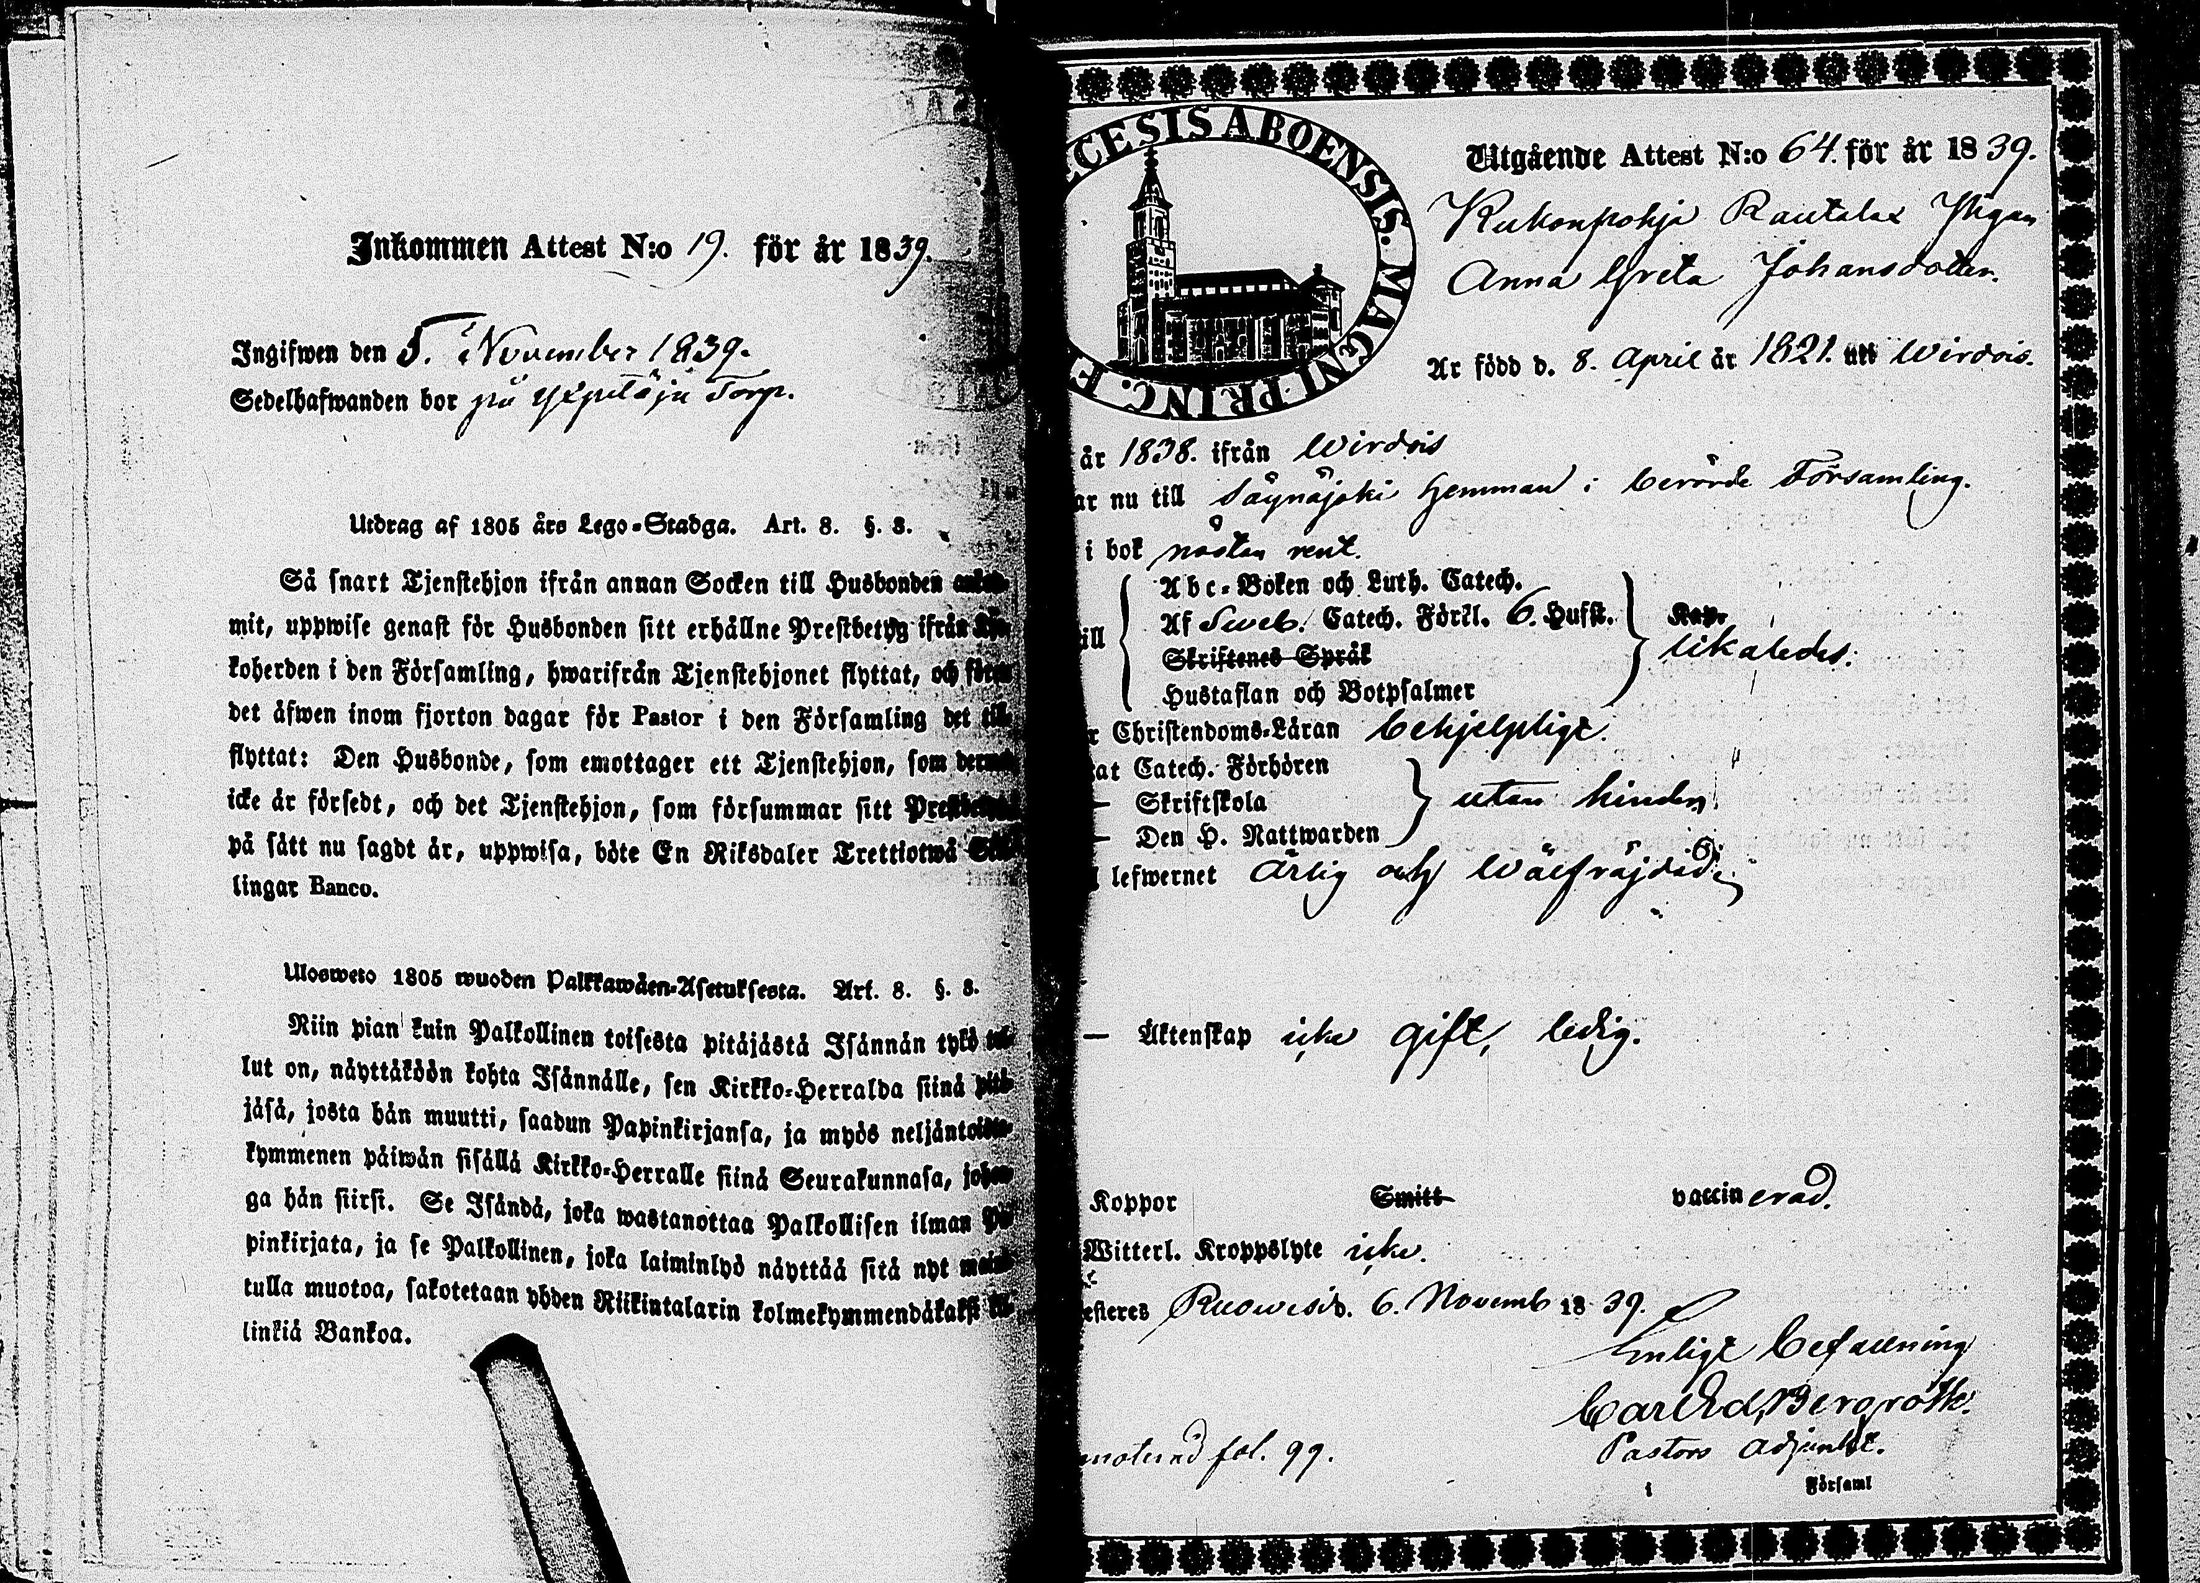 Inkommen Attest N:o 19. för år 1839.
Ingifwen den 5. November 1839.
Sedelhafwanden bor på Torp.
Utdrag af 1805 års Lego-Stadga. Art. 8. §. 8.
Så snart Tjenstehjon ifrån annan Socken till Husbonden
mit, uppwise genast för Husbonden sitt erhållne Prestbetyg ifrån
koherden i den Församling, hwarifrån Tjenstehjonet flyttat, och
det äfwen inom fjorton dagar för Pastor i den Församling det till-
flyttat: Den Husbonde, som emottager ett Tjenstehjon, som
icke är försedt, och det Tjenstehjon, som försummar sitt
på sätt nu sagdt är, uppwisa, böte En Riksdaler Trettiotwå
lingar Banco.
Ulosweto 1805 wuoden Palkkawäen-Asetuksesta. Art. 8. §. 8.
Niin pian kuin Palkollinen toisesta pitäjästä Isännän tykö
lut on, näyttäköön kohta Isännälle, sen Kirkko-Herralda siinä
jäsä, josta hän muutti, saadun Papinkirjansa, ja myös neljäntoista-
kymmenen päiwän sisällä Kirkko-Herralle siinä Seurakunnasa,
ga hän siirsi. Se Isändä, joka wastanottaa Palkollisen ilman
pinkirjata, ja se Palkollinen, joka laiminlyö näyttää sitä nyt
tulla muotoa, sakotetaan yhden Riikintalarin kolmekymmendäkaksi
linkiä Bankoa.
CESIS ABOENSIS. MAGNI. PRINC. F
Utgående Attest N:o 64. för år 1839.
Kukonpohja Rautalax Pigan
Anna Greta Johansdotter.
Är född d. 8. April år 1821. uti Wirdois.
år 1838. ifrån Wirdois
ar nu till Säynäjoki Hemman i berörde Församling.
i bok nästan rent.
ill
Abc-Boken och Luth. Catech.
Af Sweb. Catech. Förkl. 6. Hufst.
Skriftenes Språk
Hustaflan och Botpsalmer
Kap.
likaledes.
r Christendoms-Läran behjelpligt.
at Catech. Förhören
— Skriftskola
— Den H. Nattwarden
utan hinder,
lefwernet ärlig och wälfräjdad
— Äktenskap icke gift, ledig.
Koppor Smitt vaccinerad.
Witterl. Kroppslyte icke.
esteres Ruowesi d. 6. Novemb 1839.
Enligt befallning
Carl Ed. Bergroth.
Pastors adjunkt.
fol. 99.
i Församl